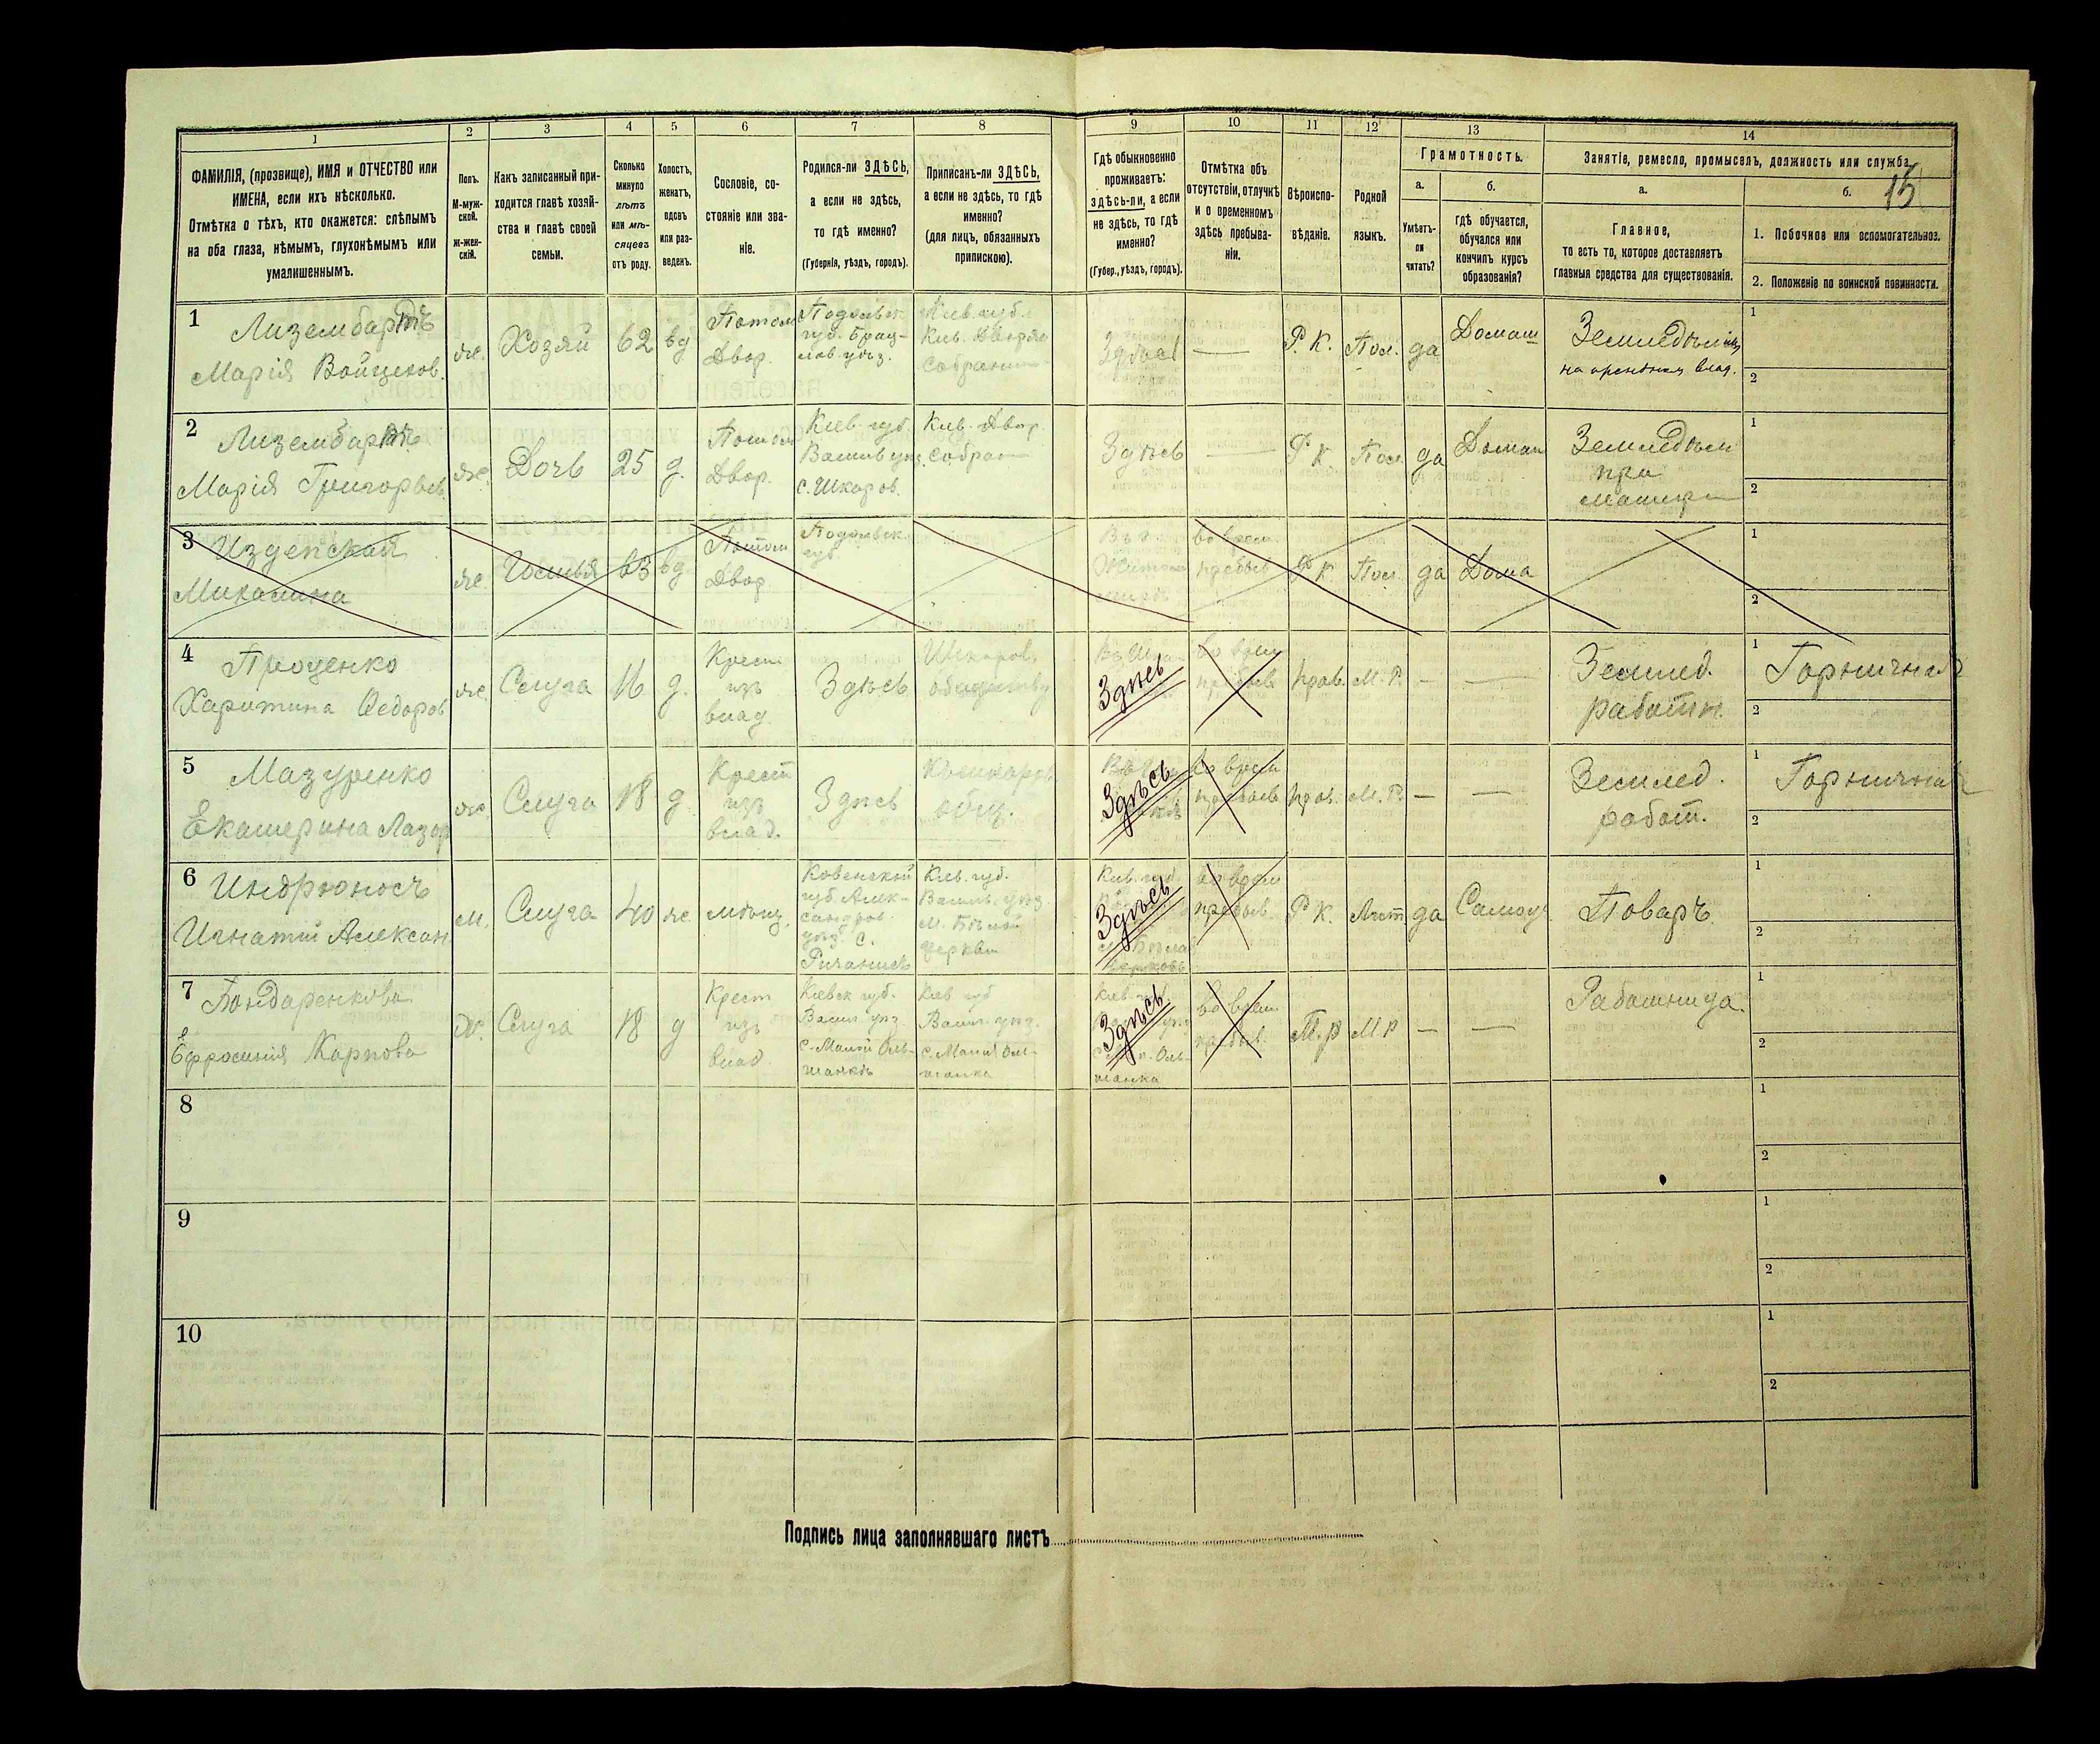 1 2 3 4 5 6 7 8 9 10 11 12 13 14
ФАМИЛІЯ, (прозвище), ИМЯ и ОТЧЕСТВО или
ИМЕНА, если ихъ нѣсколько.
Отмѣтка о тѣхъ, кто окажется: слѣпымъ
на оба глаза, нѣмымъ, глухонѣмымъ или
умалишеннымъ.
Полъ.
М-муж-
ской.
ж-жен-
скій.
Какъ записанный при-
ходится главѣ хозяй-
ства и главѣ своей
семьи.
Сколько
минуло
лѣтъ
или мѣ-
сяцевъ
отъ роду.
Холостъ,
женатъ,
вдовъ
или раз-
веденъ.
Сословіе, со-
стояніе или зва-
ніе.
Родился-ли ЗДѢСЬ,
а если не здѣсь,
то гдѣ именно?
(Губернія, уѣздъ, городъ).
Приписанъ-ли ЗДѢСЬ,
а если не здѣсь, то гдѣ
именно?
(для лицъ, обязанныхъ
припискою).
Гдѣ обыкновенно
проживаетъ:
здѣсь-ли, а если
не здѣсь, то гдѣ
именно?
(Губер., уѣздъ, городъ).
Отмѣтка объ
отсутствіи, отлучкѣ
и о временномъ
здѣсь пребыва-
ніи.
Вѣроиспо-
вѣданіе.
Родной
языкъ.
Грамотность.
а.
Умѣетъ-
ли
читать?
б.
гдѣ обучается,
обучался или
кончилъ курсъ
образованія?
Занятіе, ремесло, промыселъ, должность или служба.
15
а.
Главное,
то есть то, которое доставляетъ
главныя средства для существованія.
б.
1. Побочное или вспомогательное.
2. Положеніе по воинской повинности.
1
Лизембартъ
Марія Войцехов.
же.
Хозяй
62
вд
Потом
Двор.
Подольск
губ. Брац-
лав. уѣз.
Кіев. губ.
Кив. Дворян
собрани
Здѣсь
—
Р. К.
Пол.
да
Домаш
на арендном влад.
1
2
2
Лизембартъ
Марія Григорьев.
же.
Дочь
25
д.
Потом
Двор.
Кіев. губ.
Васильк уез.
с. Шкаров.
Кив. Двор.
собран
Здѣсь
—
Р К
Пол.
да
Домаш
при
матери
1
2
3
Микалина
же.
Гостья
63
вд
Потом
Двор.
Подольск
губ
во врем.
пребыв
Р К.
Пол.
да
Дома
1
2
4
Проценко
Харитина Федоров
же.
Слуга
16
д.
Крест
изъ
влад.
Здѣсь
Шкаров.
обществу
Здѣсь
во врем
пребыв
прав.
М. Р.
—
—
Землед.
работн.
1
Горничная
2
5
Мазуренко
Екатерина Лазар
же.
Слуга
18
д.
Крест
изъ
влад.
Здѣсь
общ.
Здѣсь
во врем
пребыв
прав.
М. Р.
—
—
Землед.
работ.
1
Горнична
2
6
Индрюносъ
Игнатій Алексан
м.
Слуга
40
же.
мѣщ.
Ковенской
губ. Алек-
сандров.
уез. С.
Кив. губ.
Василь. уез.
М. Бѣлой
Церкви
Кив. губ.
Здѣсь
Бѣла
Церковь
во врем
пребыв.
Р К.
Лит
да
Самоу
Поваръ
1
2
7
Бондаренкова
Ефросинія Карпова
Ж.
Слуга
18
д
Крест
изъ
влад
Кіевск губ.
Васил. уез.
с. Малой Оль-
шанкѣ
Кив. губ
Васил. уез.
с. Малой Оль-
шанка
Кив. губ
Здѣсь
Оль-
шанка
во врем.
пребыв.
М Р
—
—
Работница.
1
2
8
1
2
9
1
2
10
1
2
Подпись лица заполнявшаго листъ